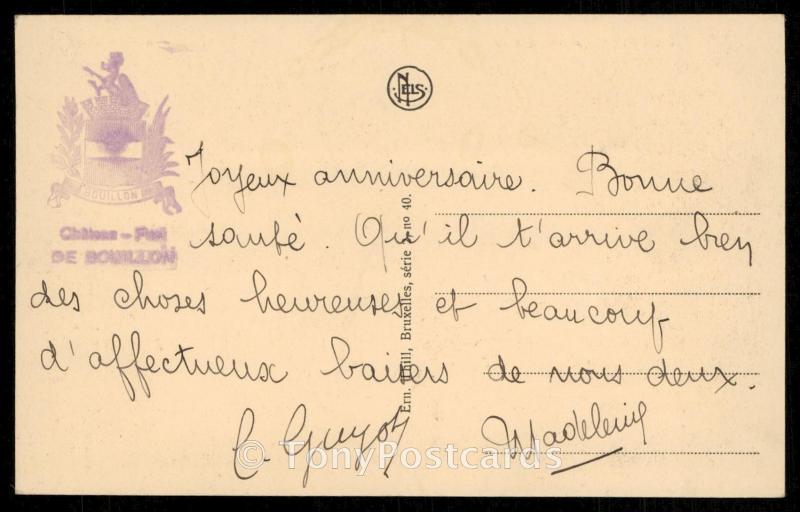 NELS
BOUILLON
Château - Fort
DE BOUILLON
Joyeux anniversaire. Bonne
santé. Qu'il t'arrive bien
des choses heureuses et beaucoup
d'affectueux baisers de nous deux.
C. Guyot Madeleine
Ern. Thill, Bruxelles, série no 40.
© TonyPostcards